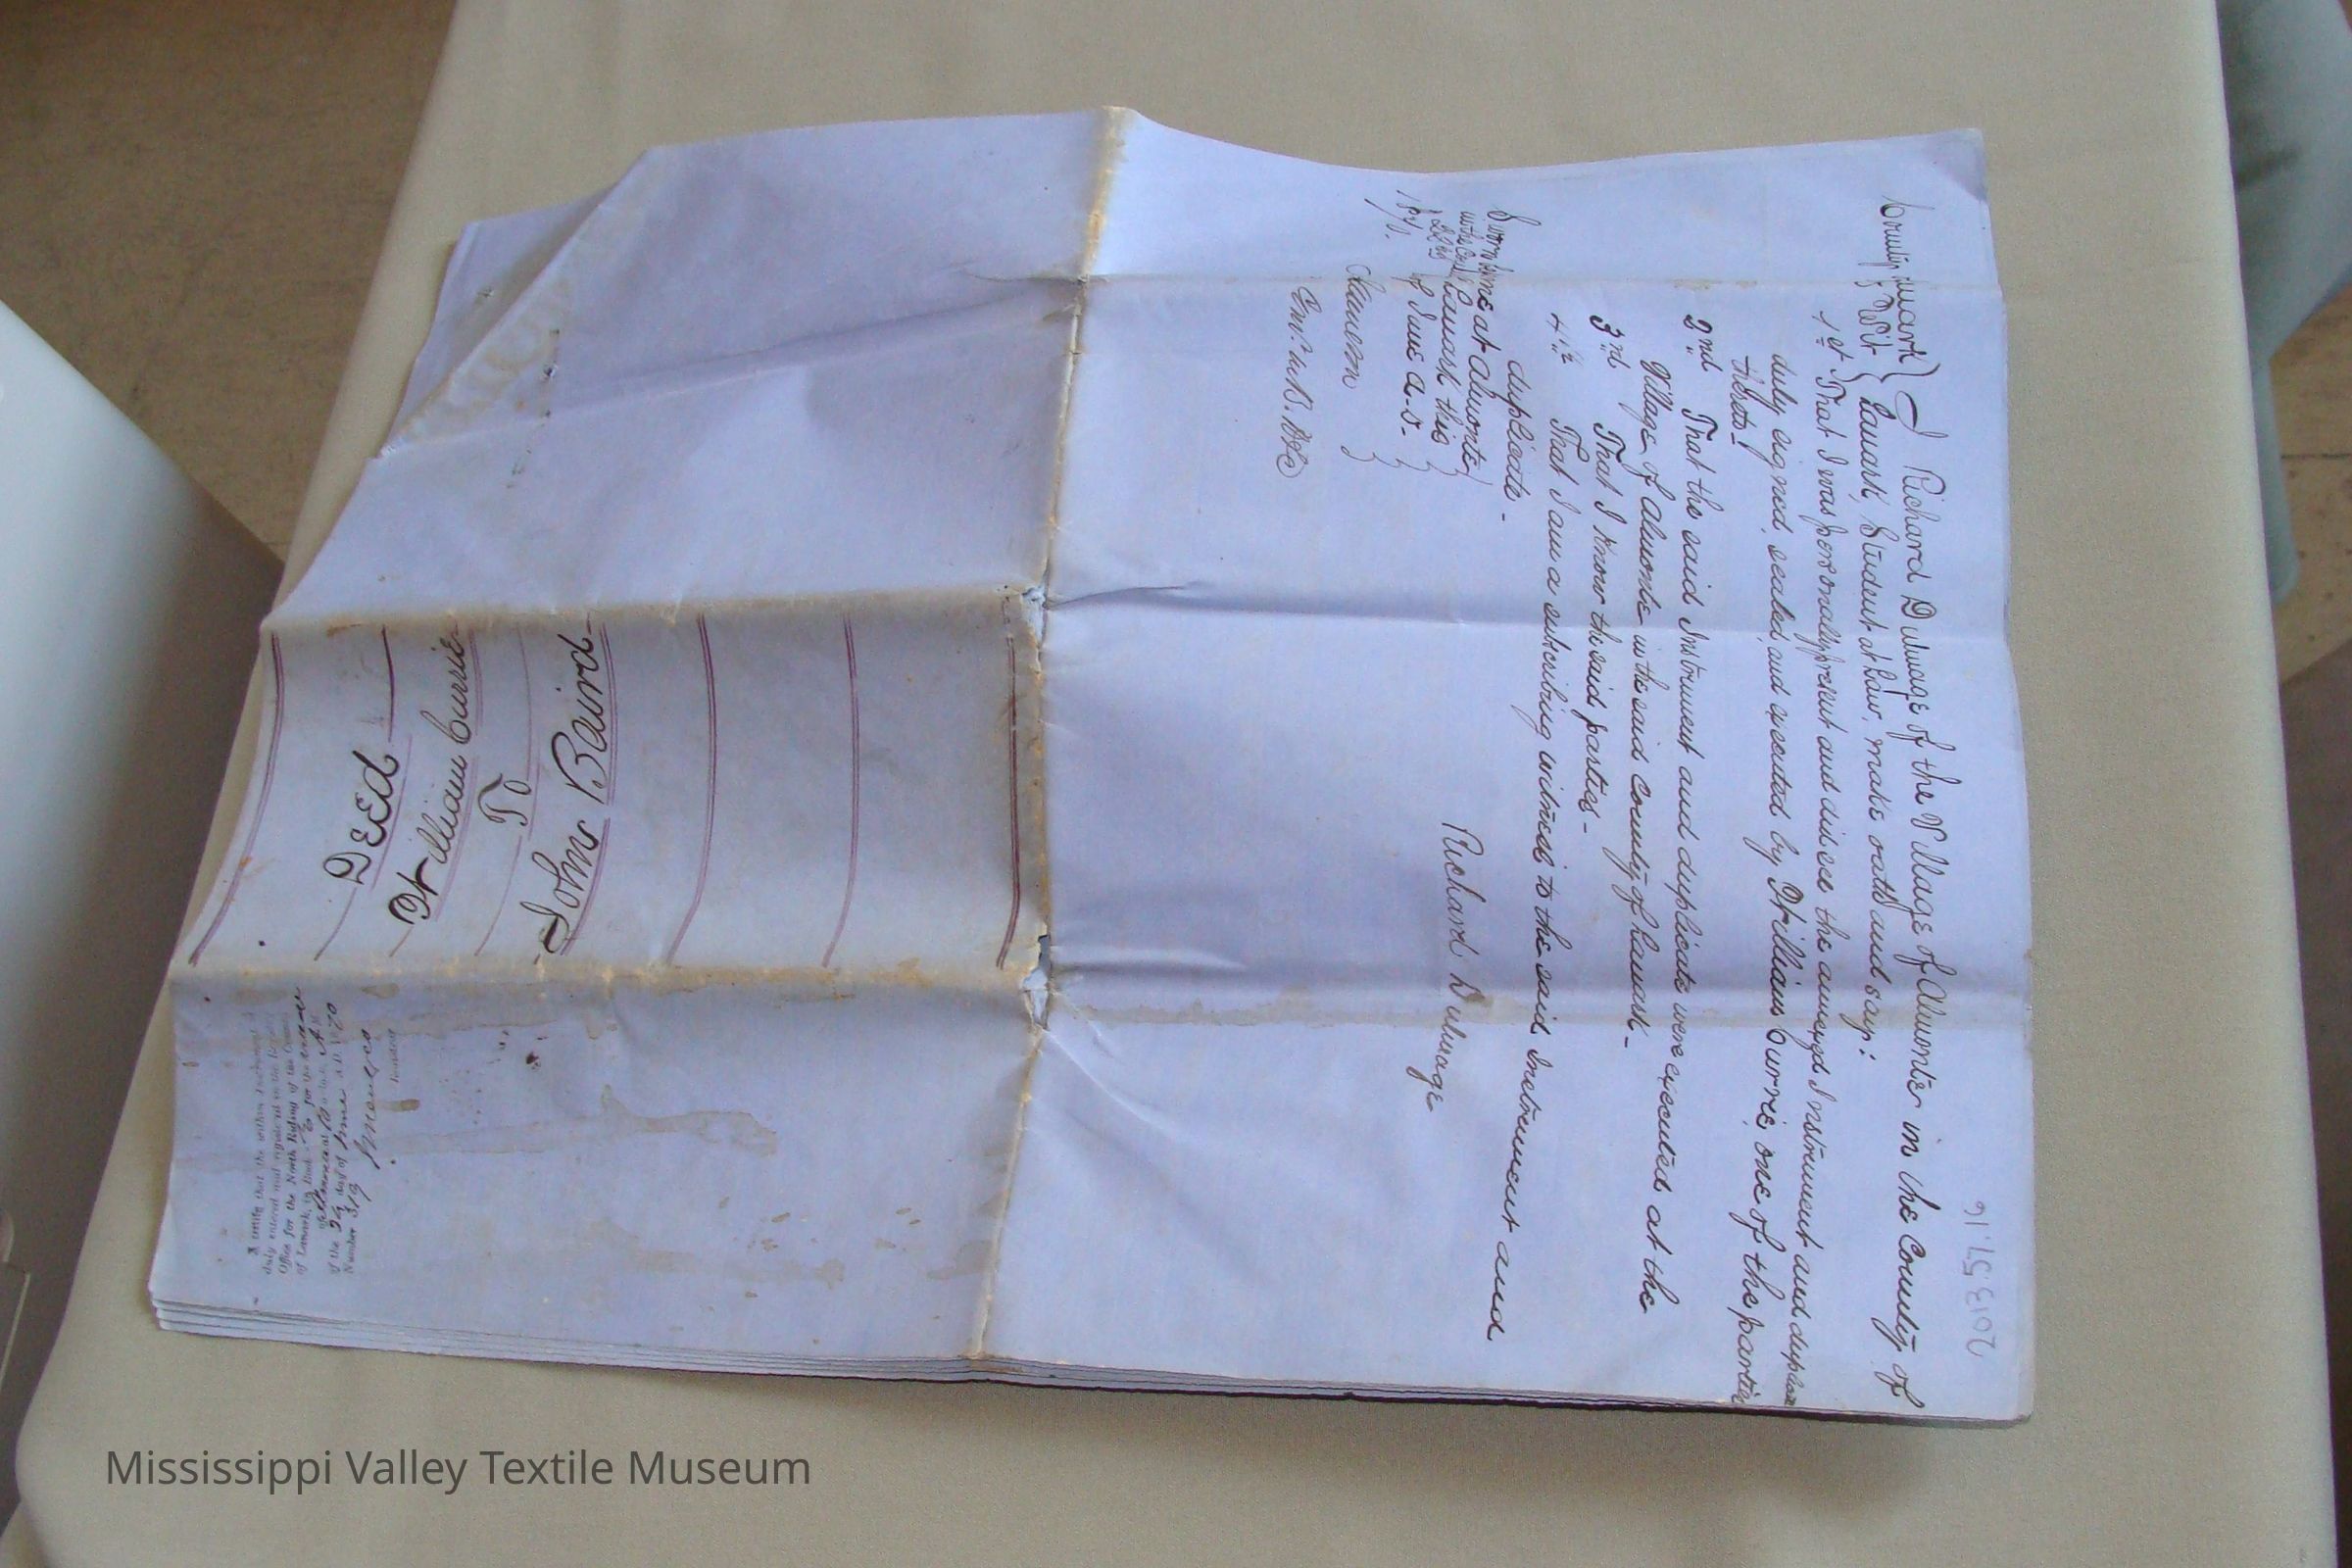 2013.57.16
County of Lanark } I Richard Dulmage of the Village of Almonte in the County of
To Wit } Lanark, Student at Law, make oath and say:
1st That I was personally present and did see the annexed Instrument and duplicate
duly signed, sealed and executed by William Currie, one of the parties
thereto-
2nd That the said Instrument and duplicate were executed at the
Village of Almonte in the said County of Lanark-
3rd That I know the said parties-
4th That I am a subscribing witness to the said Instrument and
duplicate-
Sworn before me at Almonte
in the County of Lanark this
day of June A.D.
187
Richard Dulmage
Deed
William Currie
To
John Baird
I certify that the within Instrument is
duly entered and registered in the Registry
Office for the North Riding of the County
of Lanark, in Book E for
at
of the day of June A.D. 18
Number 319